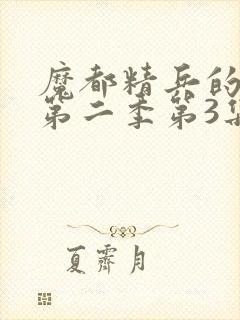 魔都精兵的
第二季第3集
夏霽月